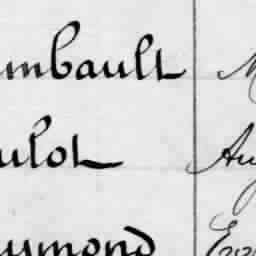 umbault M
ulot Au
aymond